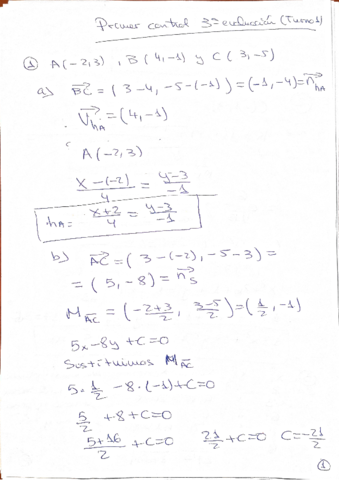 Primer control 3ª evaluación (Turno 1)
① A(-2,3) , B(4,-1) y C(3,-5)
a) \overrightarrow{BC} = (3-4, -5-(-1)) = (-1,-4) = \overrightarrow{n_{hA}}
\overrightarrow{V_{hA}} = (4,-1)
A(-2,3)
\frac{x-(-2)}{4} = \frac{y-3}{-1}
h_A = \frac{x+2}{4} = \frac{y-3}{-1}
b) \overrightarrow{AC} = (3-(-2), -5-3) =
= (5,-8) = \overrightarrow{n_s}
M_{\overline{AC}} = (\frac{-2+3}{2}, \frac{3-5}{2}) = (\frac{1}{2}, -1)
5x-8y+C=0
Sustituimos M_{\overline{AC}}
5·\frac{1}{2} -8·(-1)+C=0
\frac{5}{2} +8+C=0
\frac{5+16}{2} +C=0 \frac{21}{2}+C=0 C=-\frac{21}{2}
①